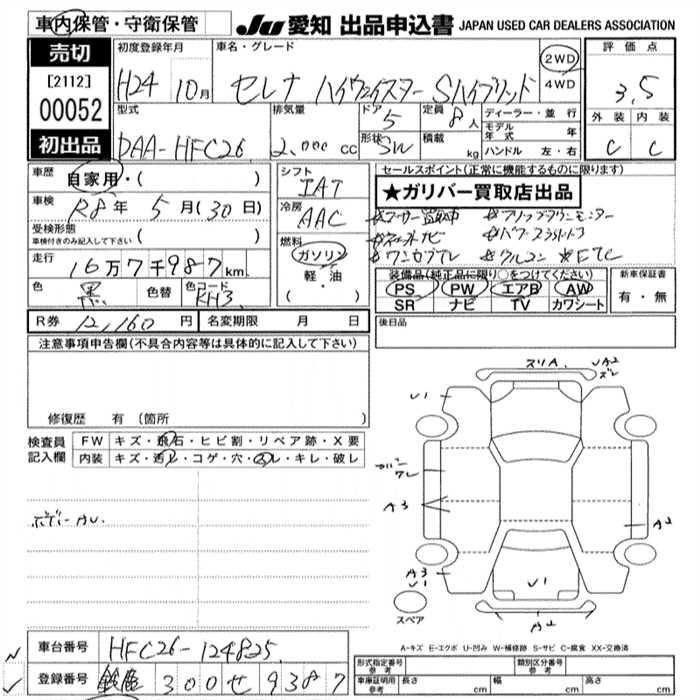 車内保管・守衛保管
JU 愛知 出品申込書 JAPAN USED CAR DEALERS ASSOCIATION
売切
[2112]
00052
初出品
初度登録年月
H24 10月
車名・グレード
セレナ ハイウェイスター Sハイブリッド
2WD
4WD
評価点
3.5
外装 内装
C C
型式
DAA-HFC26
排気量
2,000 cc
ドア
5
形状
SW
定員
8人
積載
kg
ディーラー・並行
モデル年式 年
ハンドル 左・右
車歴
自家用・( )
車検
R8年 5月(30日)
受検形態
車検付きのみ記入して下さい ( )
走行
16万7千987km.
色
黒
色替
色コード
KH3
シフト
IAT
冷房
AAC
燃料
ガソリン
軽・油
( )
セールスポイント(正常に機能するものに限ります)
★ガリバー買取店出品
*ユーザー買取車 *フリップダウンモニター
*ナビ *パワースライドドア
*ワンセグTV *クルコン *ETC
装備品(純正品に限り○をつけてください)
PS PW エアB AW
SR ナビ TV カワシート
新車保証書
有・無
R券 12,160円
名変期限 月 日
後日品
注意事項申告欄(不具合内容等は具体的に記入して下さい)
修復歴 有(箇所 )
検査員記入欄
FW キズ・飛石・ヒビ割・リペア跡・X要
内装 キズ・汚レ・コゲ・穴・スレ・キレ・破レ
スリA UA2
ズレ
U1
カバーワレ
A3
A2
A3
U1
U1
A2
スペア
A-キズ E-エクボ U-凹み W-補修跡 S-サビ C-腐食 XX-交換済
車台番号 HFC26-124825
登録番号 300せ9387
型式指定番号 参考
類別区分番号 参考
車庫証明用 参考 長さ cm 幅 cm 高さ cm